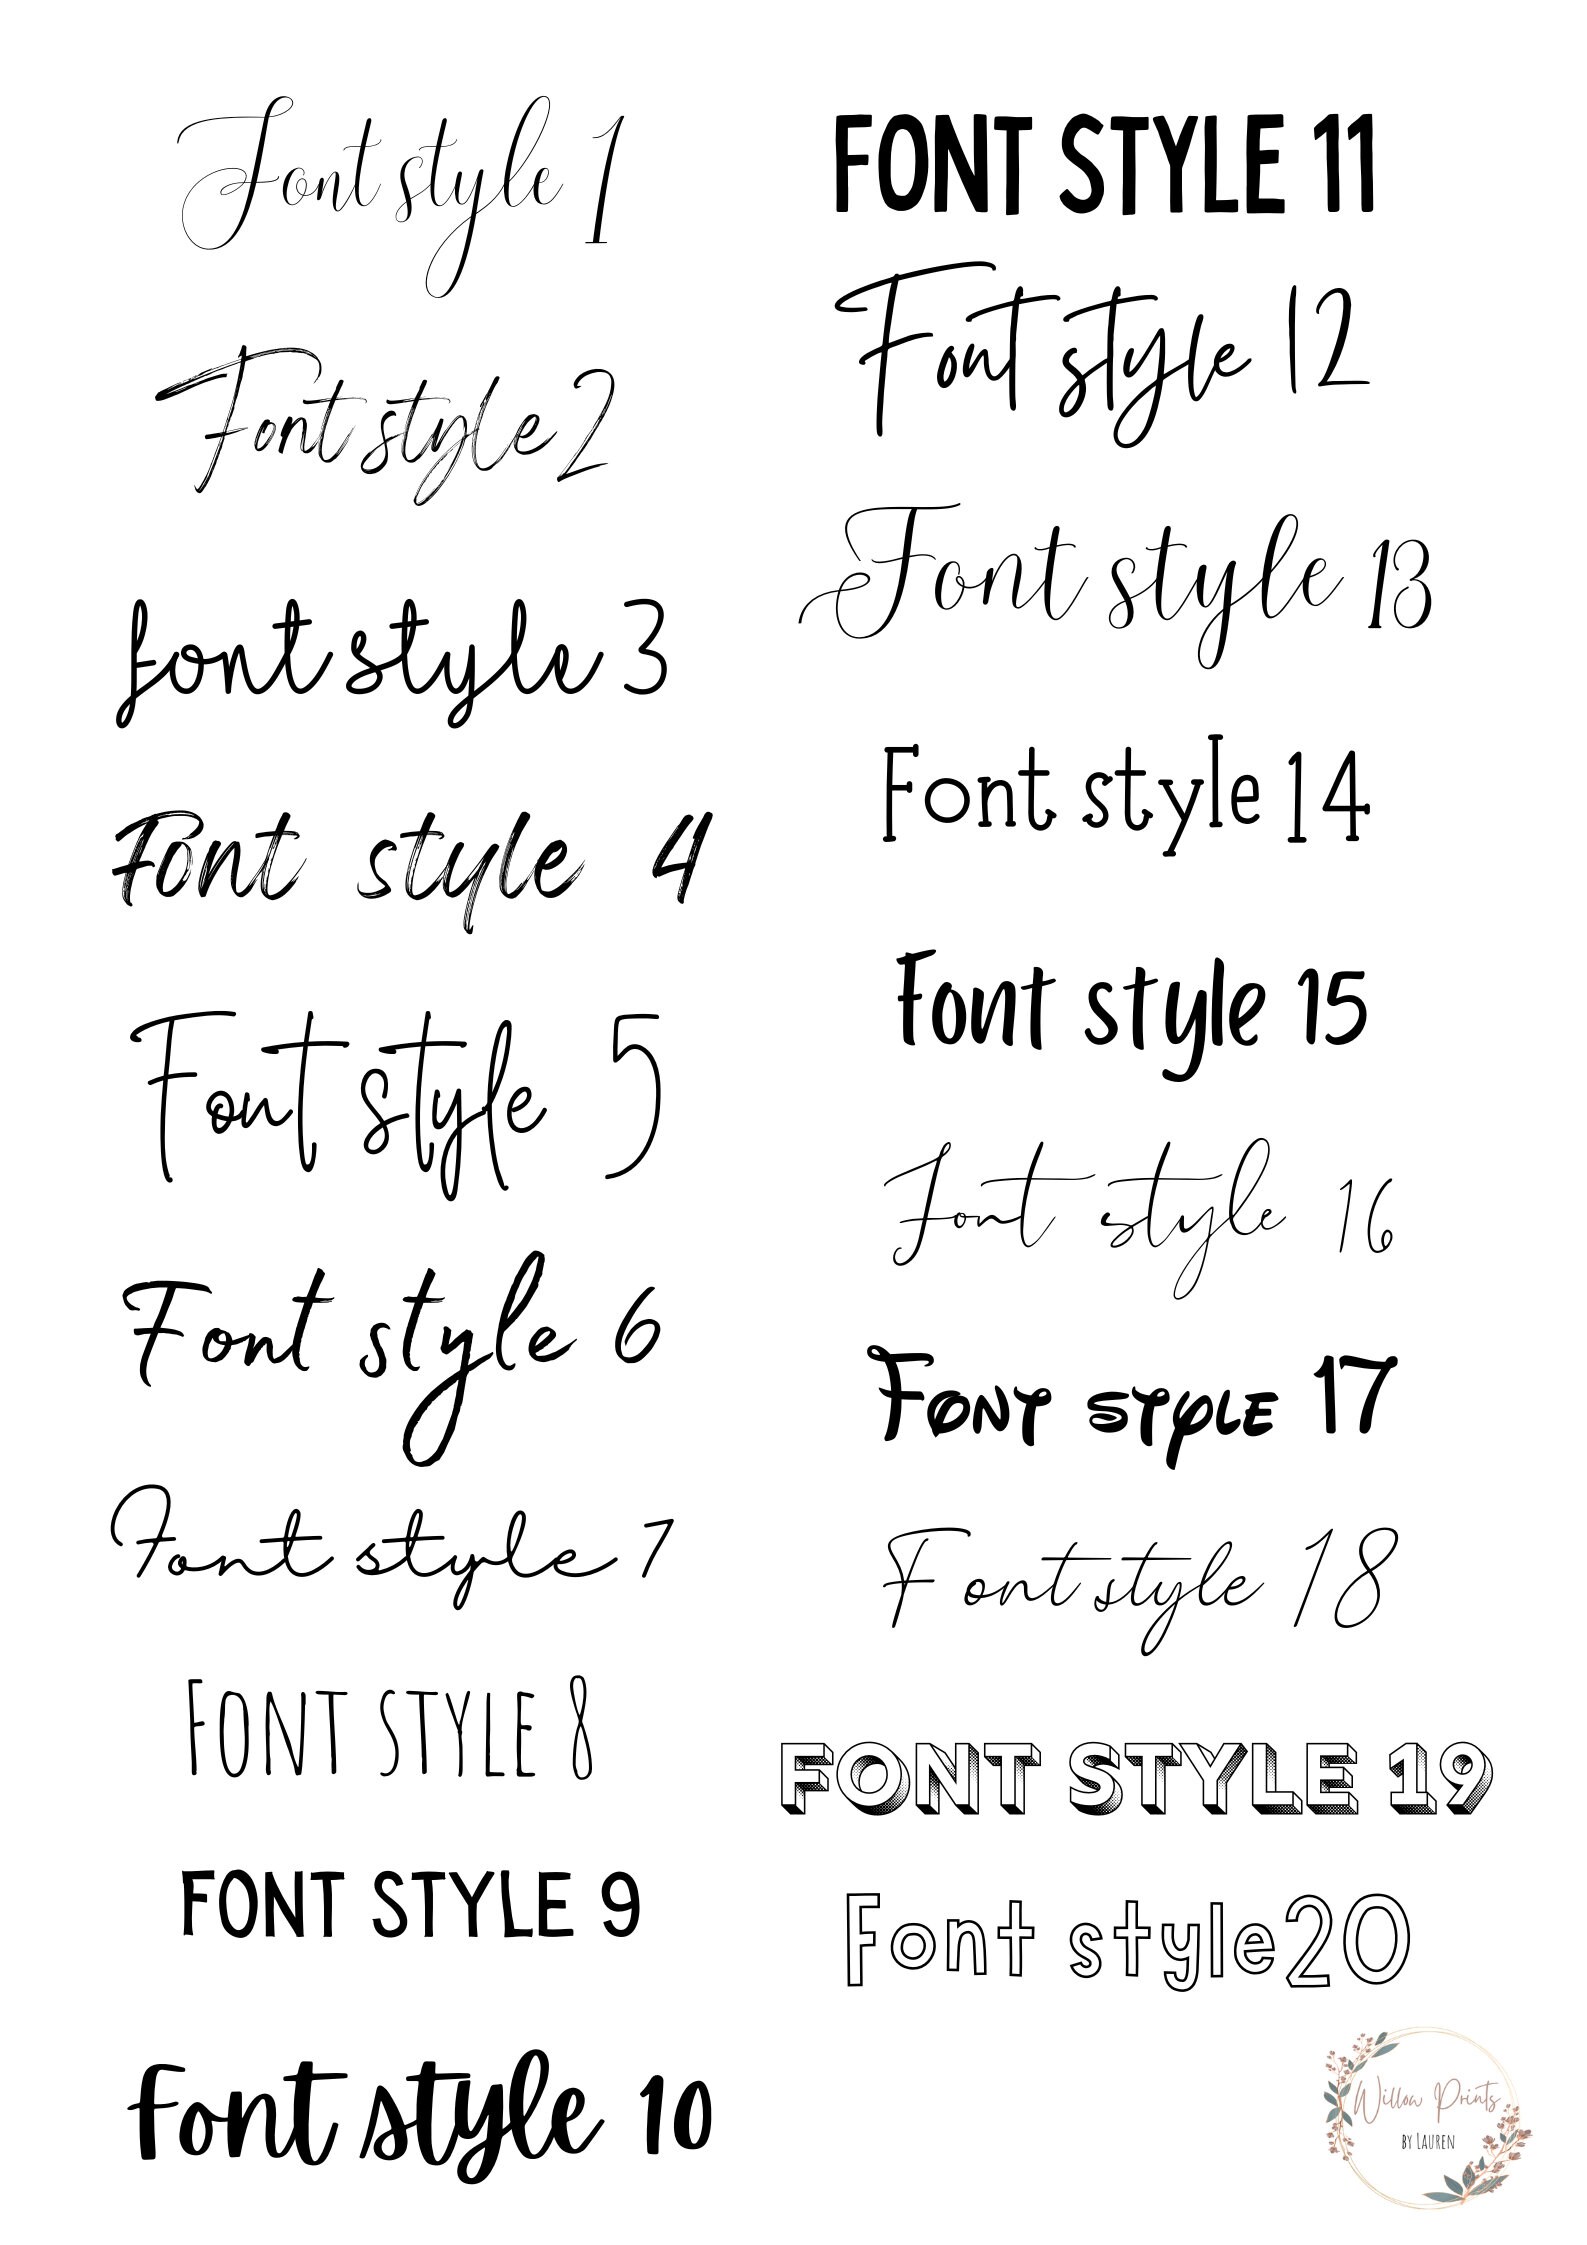 Font style 1
Font style 2
font style 3
Font style 4
Font style 5
Font style 6
Font style 7
FONT STYLE 8
FONT STYLE 9
Font style 10
FONT STYLE 11
Font style 12
Font style 13
Font style 14
Font style 15
Font style 16
Font style 17
Font style 18
FONT STYLE 19
Font style20
Willow Prints
BY LAUREN